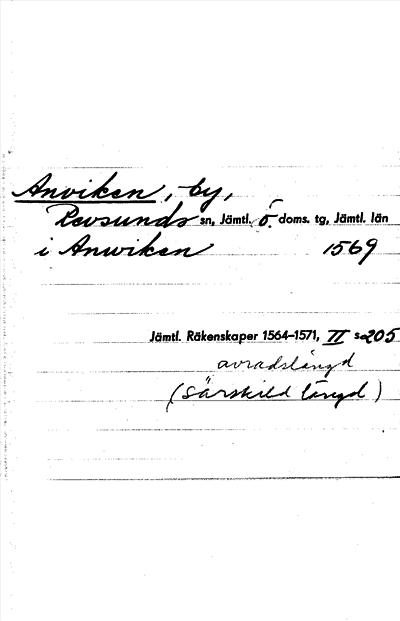 Anviken, by,
Revsunds sn, Jämtl. Ö. doms. tg, Jämtl. län
i Anwiken 1569
Jämtl. Räkenskaper 1564–1571, II s. 205
avradslängd
(särskild längd)